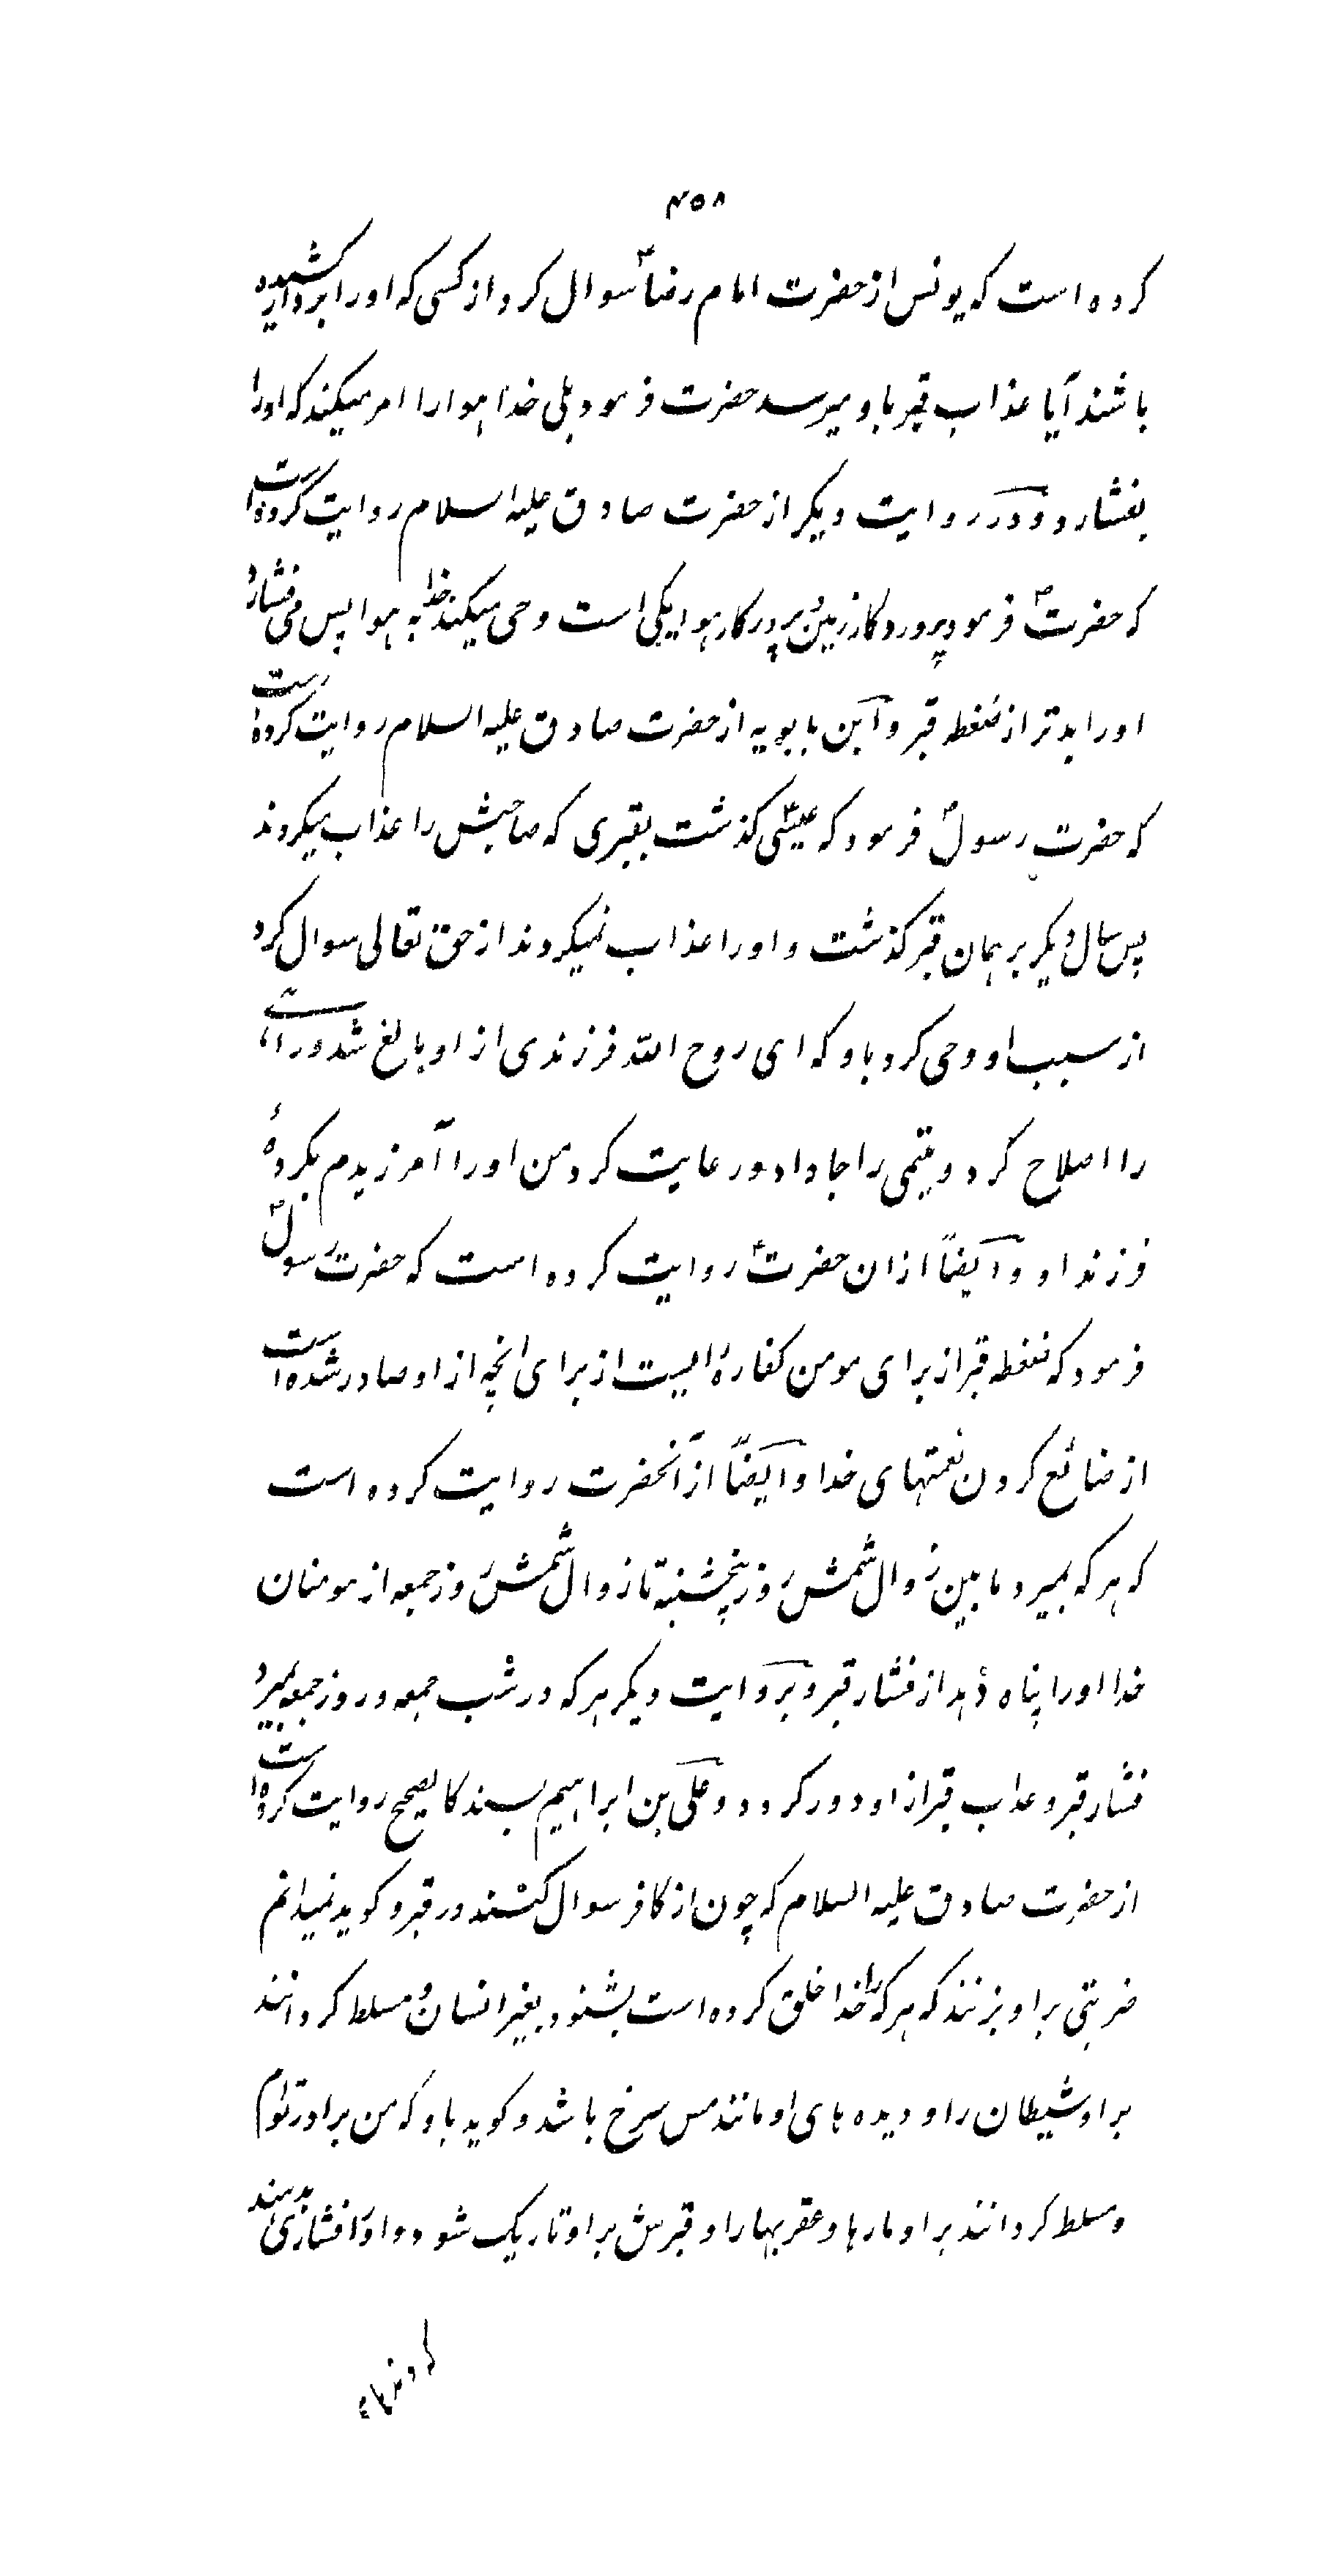 ۴۵۸
کرده است که یونس از حضرت امام رضاؑ سوال کرد از کسی که او را بردار کشیده
باشند آیا عذاب قبر باو میرسد حضرت فرمود بلی خدا هوا را امر میکند که او را
بفشارد و در روایت دیکر از حضرت صادق علیه السلام روایت کرده است
که حضرتؑ فرمود پروردکار زمین و پروردکار هوا یکی است وحی میکند خدا به هوا پس می فشارد
او را بدتر از ضغطه قبر و ابن بابویه از حضرت صادق علیه السلام روایت کرده است
که حضرت رسولؐ فرمود که عیسیؑ کذشت بقبری که صاحبش را عذاب میکردند
پس سال دیکر بر همان قبر کذشت و او را عذاب نمیکردند از حق تعالی سوال کرد
از سبب او وحی کرد باو که ای روح الله فرزندی از او بالغ شد و راهی
را اصلاح کرد و یتیمی را جا داد و رعایت کرد من او را آمرزیدم بکردهٔ
فرزند او و ایضاً از ان حضرتؑ روایت کرده است که حضرت رسولؐ
فرمود که ضغطه قبر از برای مومن کفارهٔ ایست از برای انچه از او صادر شده است
از ضائع کردن نعمتهای خدا و ایضاً از آنحضرت روایت کرده است
که هر که بمیرد مابین زوال شمس روز پنچشنبه تا زوال شمس روز جمعه از مومنان
خدا او را پناه دهد از فشار قبر و بروایت دیکر هر که در شب جمعه و روز جمعه بمیرد
فشار قبر و عذاب قبر از او دور کردد و علی بن ابراهیم بسند کالصحیح روایت کرده است
از حضرت صادق علیه السلام که چون از کافر سوال کنند در قبر و کوید نمیدانم
ضربتی بر او بزنند که هر که را خدا خلق کرده است بشنود بغیر انسان و مسلط کردانند
بر او شیطان را و دیده های او مانند مس سرخ باشد و کوید باو که من برادر توام
و مسلط کردانند بر او مارها و عقربها را و قبرش بر او تاریک شود و او را فشاری بدهند